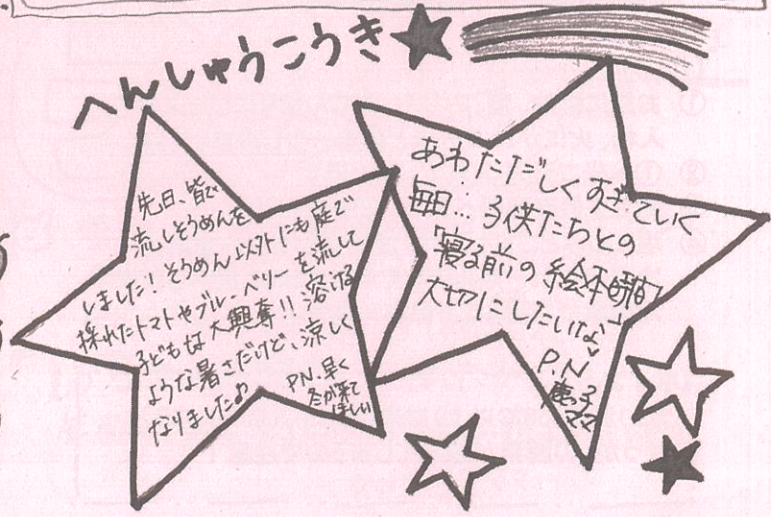 へんしゅうこうき
先日、皆で
流しそうめんを
しました!そうめん以外にも庭で
採れたトマトやブルーベリーを流して
子どもは大興奮!!溶ける
ような暑さだけど、涼しく
なりました♪
P.N.早く
冬が来て
ほしい
あわただしくすぎていく
毎日…子供たちとの
「寝る前の絵本時間」
大切にしたいな
P.N
ママ